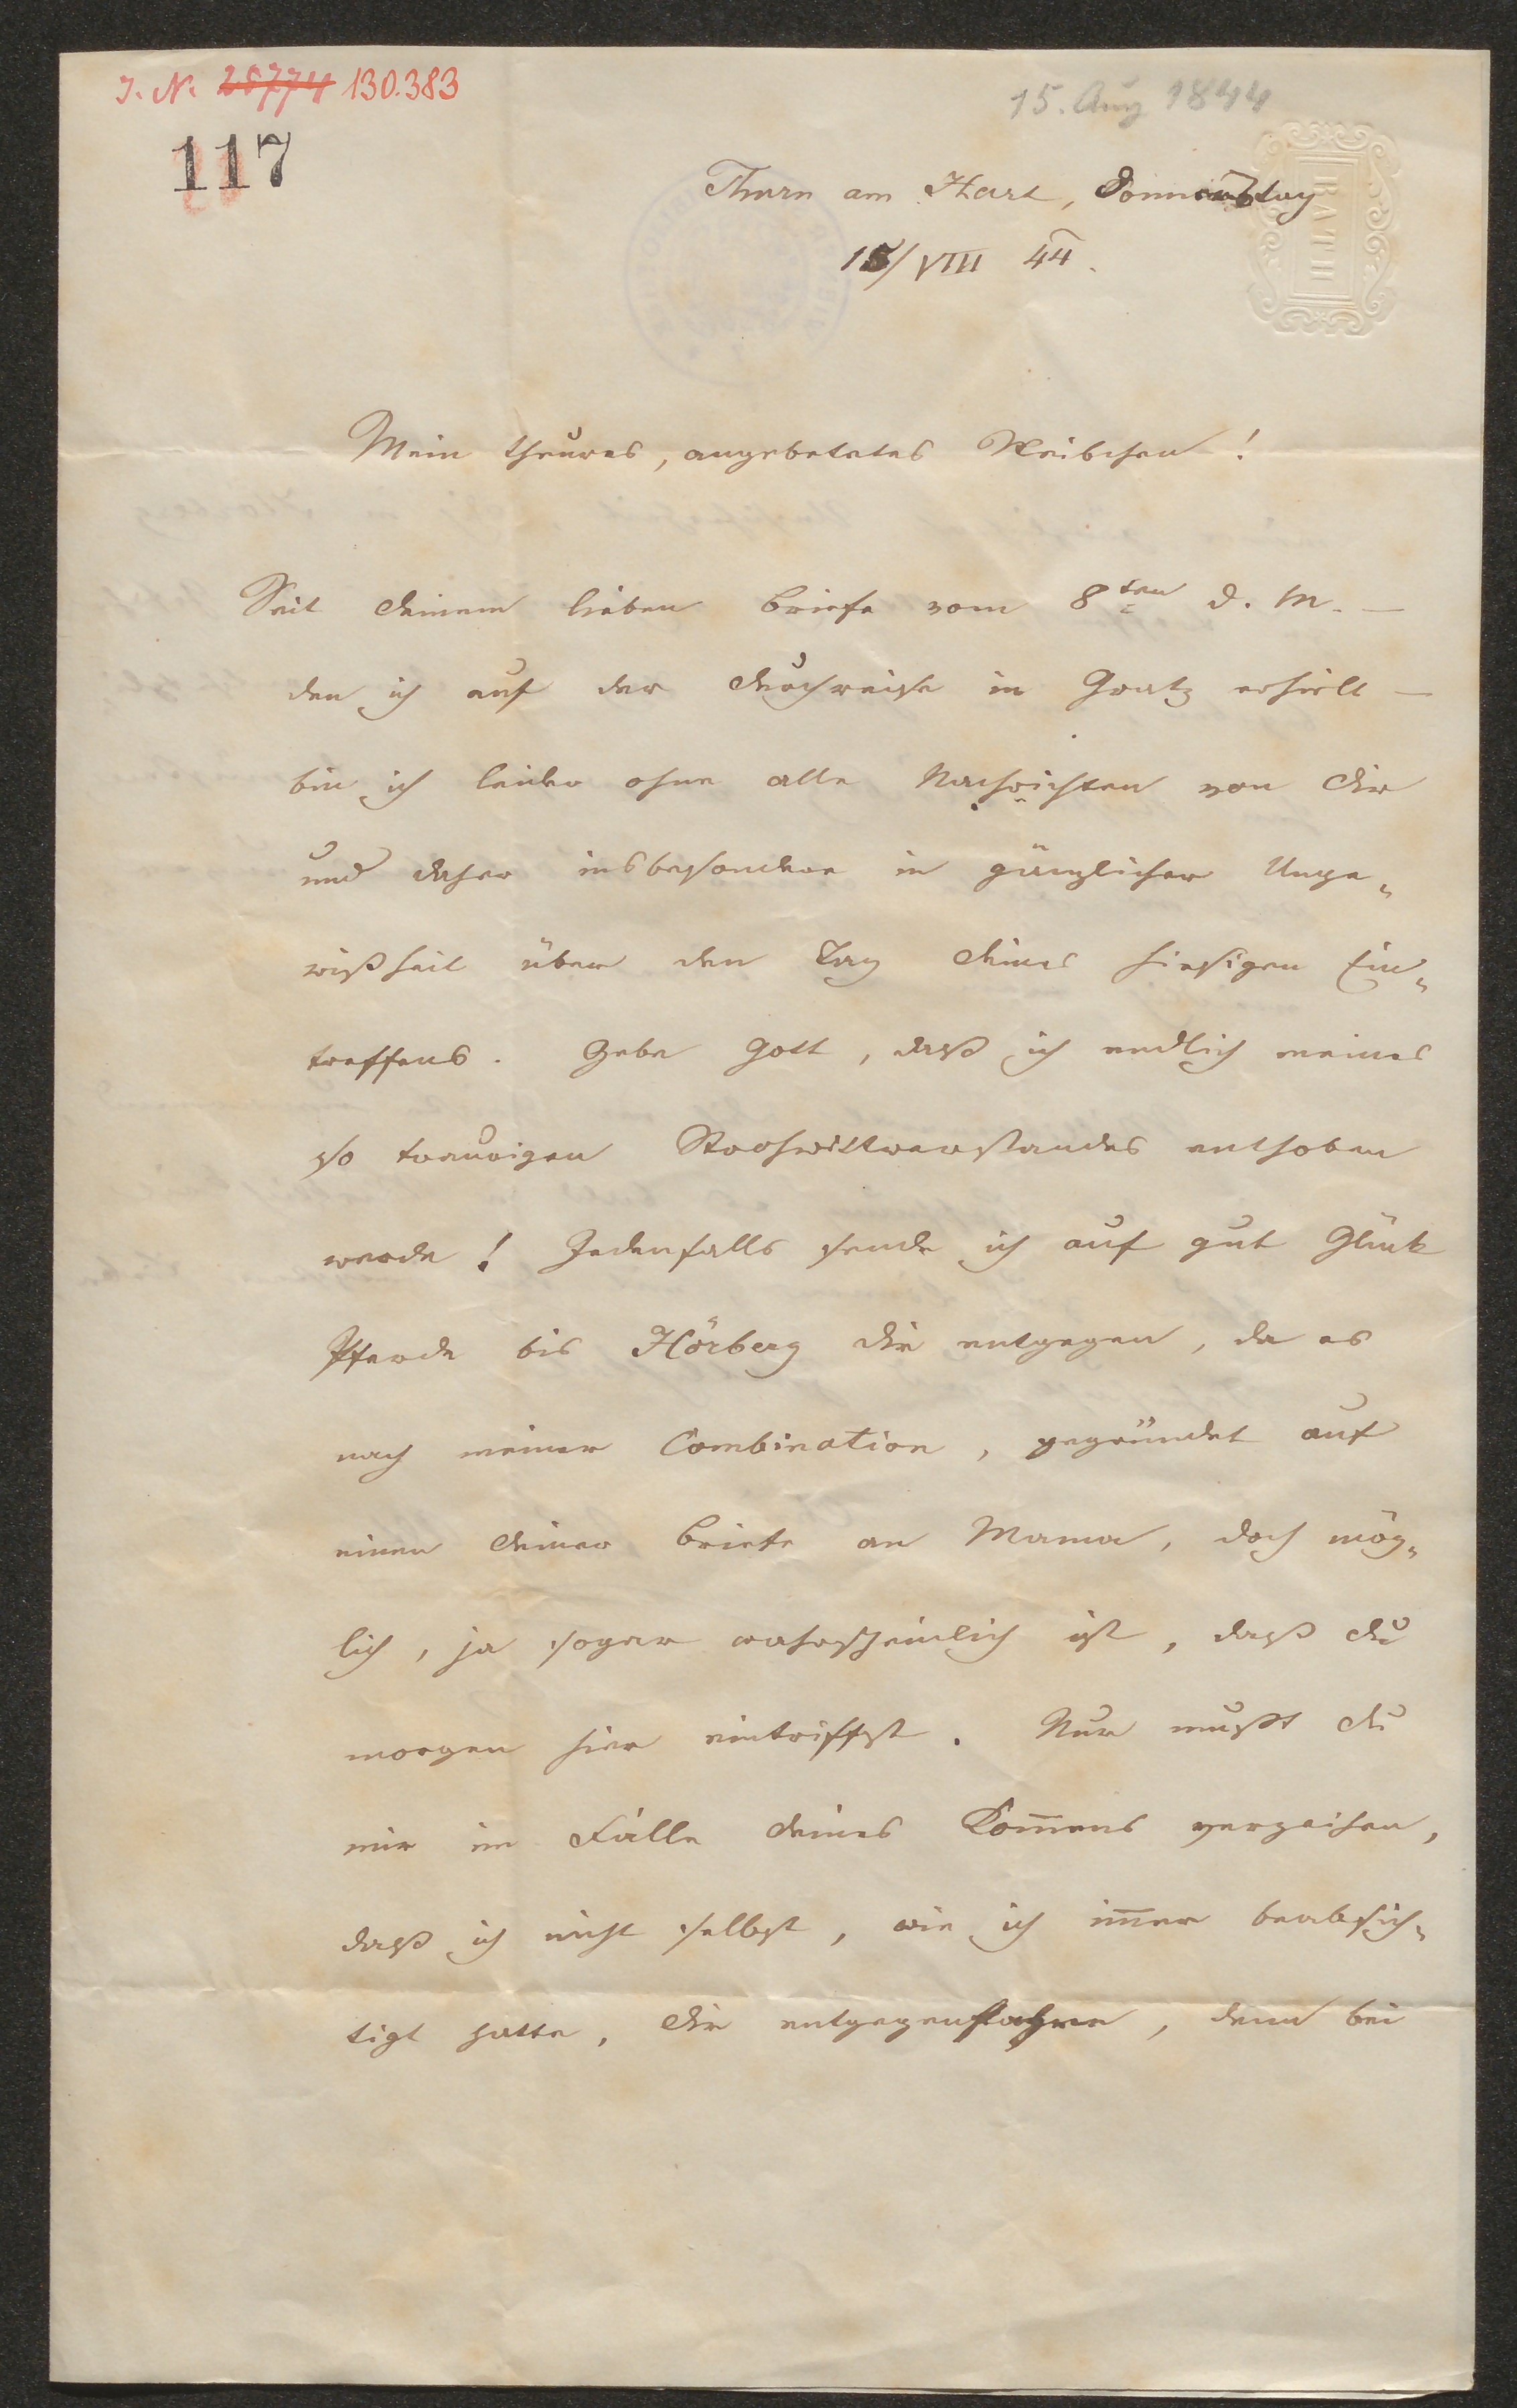 J. N. 28774 130.383
15. Aug 1844
117
BATH
Thurn am Hart, Donnerstag
15/VIII 44.
Mein theures, angebetetes Weibchen!
Seit deinem lieben Briefe vom 8ten d. M. —
den ich auf der Durchreise in Gratz erhielt —
bin ich leider ohne alle Nachrichten von dir
und daher insbesondere in gänzlicher Unge„
wißheit über den Tag deines hiesigen Ein„
treffens. Gebe Gott, daß ich endlich meines
so traurigen Strohwittwerstandes enthoben
werde! Jedenfalls sende ich auf gut Glück
Pferde bis Hörberg dir entgegen, da es
nach meiner Combination, gegründet auf
einen deiner Briefe an Mama, doch mög„
lich, ja sogar wahrscheinlich ist, daß du
morgen hier eintriffst. Nur mußt du
mir im Falle deines Kom̄ens verzeihen,
daß ich nicht selbst, wie ich im̄er beabsich„
tigt hatte, dir entgegenfahre, denn bei